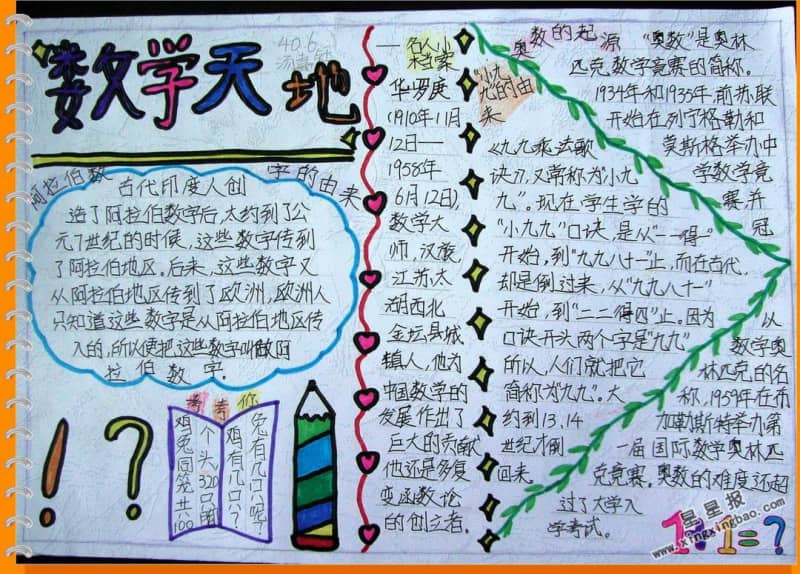 数学天地
40.6
阿拉伯数字的由来
古代印度人创
造了阿拉伯数字后,大约到了公
元7世纪的时候,这些数字传到
了阿拉伯地区。后来,这些数字又
从阿拉伯地区传到了欧洲,欧洲人
只知道这些数字是从阿拉伯地区传
入的,所以便把这些数字叫做阿
拉伯数字。
考考你
鸡兔同笼共100
个头320只脚
鸡有几只?
兔有几只呢?
名人小
档案
华罗庚
1910年11月
12日——
1958年
6月12日),
数学大
师,汉族,
江苏太
湖西北
金坛县城
镇人,他为
中国数学的
发展作出了
巨大的贡献
他还是多复
变函数论
的创立者。
"小九
九"的由
来
《九九乘法歌
诀》,又常称为"小九
九"。现在学生学的
"小九九"口诀,是从"一一得一"
开始,到"九九八十一"止,而在古代,
却是倒过来,从"九九八十一"
开始,到"二二得四"止。因为
口诀开头两个字是"九九"
所以,人们就把它
简称为"九九"。大
约到13,14
世纪才倒
回来。
奥数的起源
"奥数"是奥林
匹克数学竞赛的简称。
1934年和1935年,前苏联
开始在列宁格勒和
莫斯格举办中
学数学竞
赛,并
冠
以
数学奥
林匹克的名
称,1959年在布
加勒斯特举办第
一届国际数学奥林匹
克竞赛。奥数的难度还超
过了大学入
学考试。
1+1=?
星星报
www.xingxingbao.com